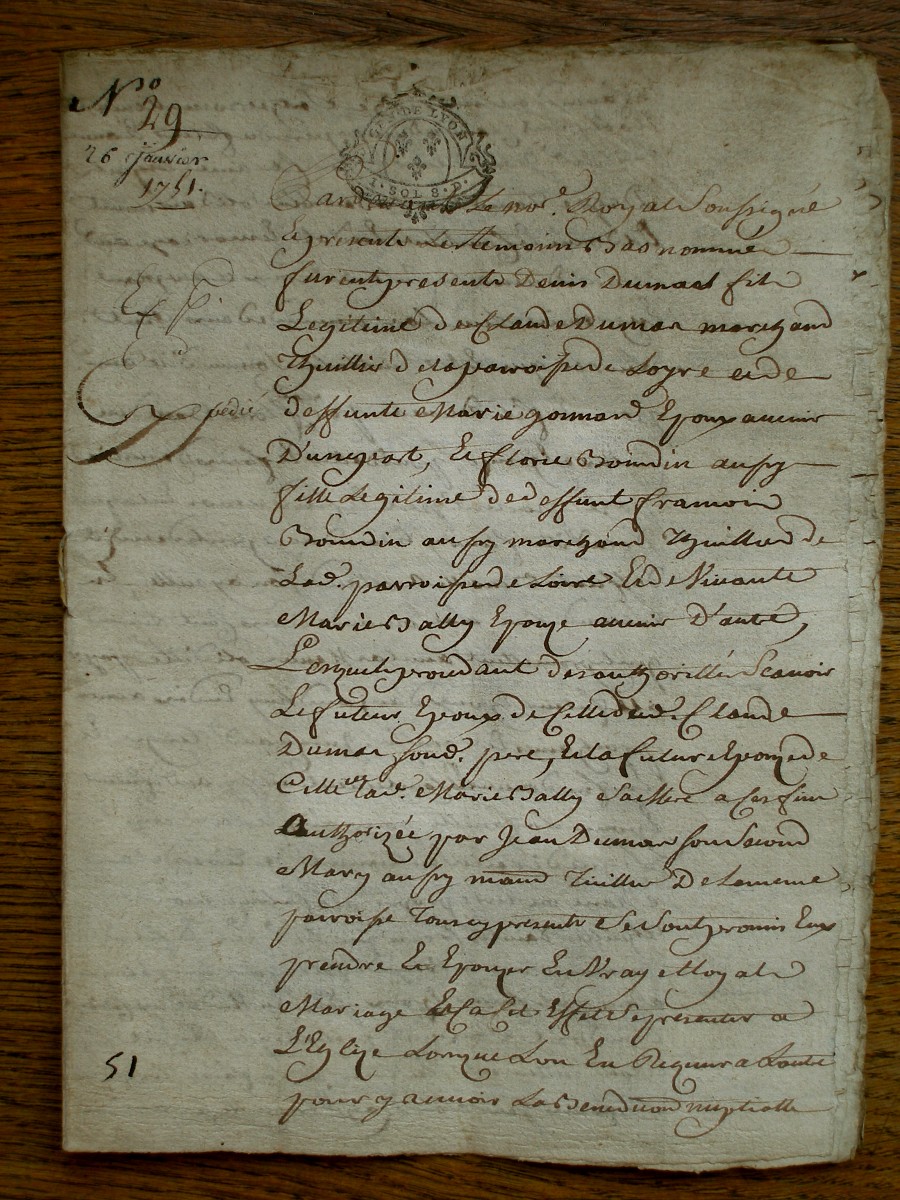 N.o
29
26 janvier
1751.
GEN. DE LYON
1. SOL 8. D.
Par le no.re Royal Soussigné
Et presents Les temoins Bas nommé
furent presents Denis Dumas fils
Legitime de Claude Dumas marchand
Thuillier de la parroisse de Loyre et de
deffunte Marie gonnard Epoux avenir
D'une part, Et florie Bondin aussy
fille Legitime de deffunt francois
Bondin aussy marchand Thuillier de
Lad. parroisse de Loire Et de Vivante
Marie Bally Epouze avenir D'autre,
Lesquels procedant des authorittés Scavoir
Le futeur Epoux de Celle dud. Claude
Dumas sond. pere, Et la future Epouze de
Celle de Lad. Marie Bally Sa Mere a Ces fins
Authorizée par Jean Dumas son Second
Mary aussy mand Tuillier De la meme
parroisse Tous cy presents Se Sont promis Eux
prendre Et Epouzer En Vray Et Loyal
Mariage Et a Cet Effet Se presenter a
L'Eglize Lorsque L'on En Requerra L'autre
pour y avoir La Benediction nuptialle
Expedié
51